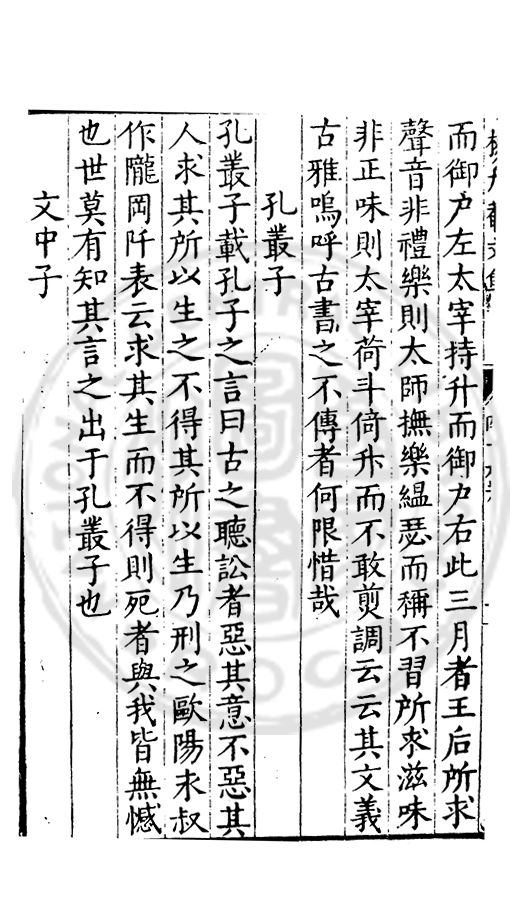 而御户左太宰持升而御户右此三月者王后所求
聲音非禮樂則太師撫樂縕瑟而稱不習所求滋味
非正味則太宰荷斗倚升而不敢煎調云云其文義
古雅嗚呼古書之不傳者何限惜哉
孔叢子
孔叢子載孔子之言曰古之聽訟者惡其意不惡其
人求其所以生之不得其所以生乃刑之歐陽永叔
作隴岡阡表云求其生而不得則死者與我皆無憾
也世莫有知其言之出于孔叢子也
文中子